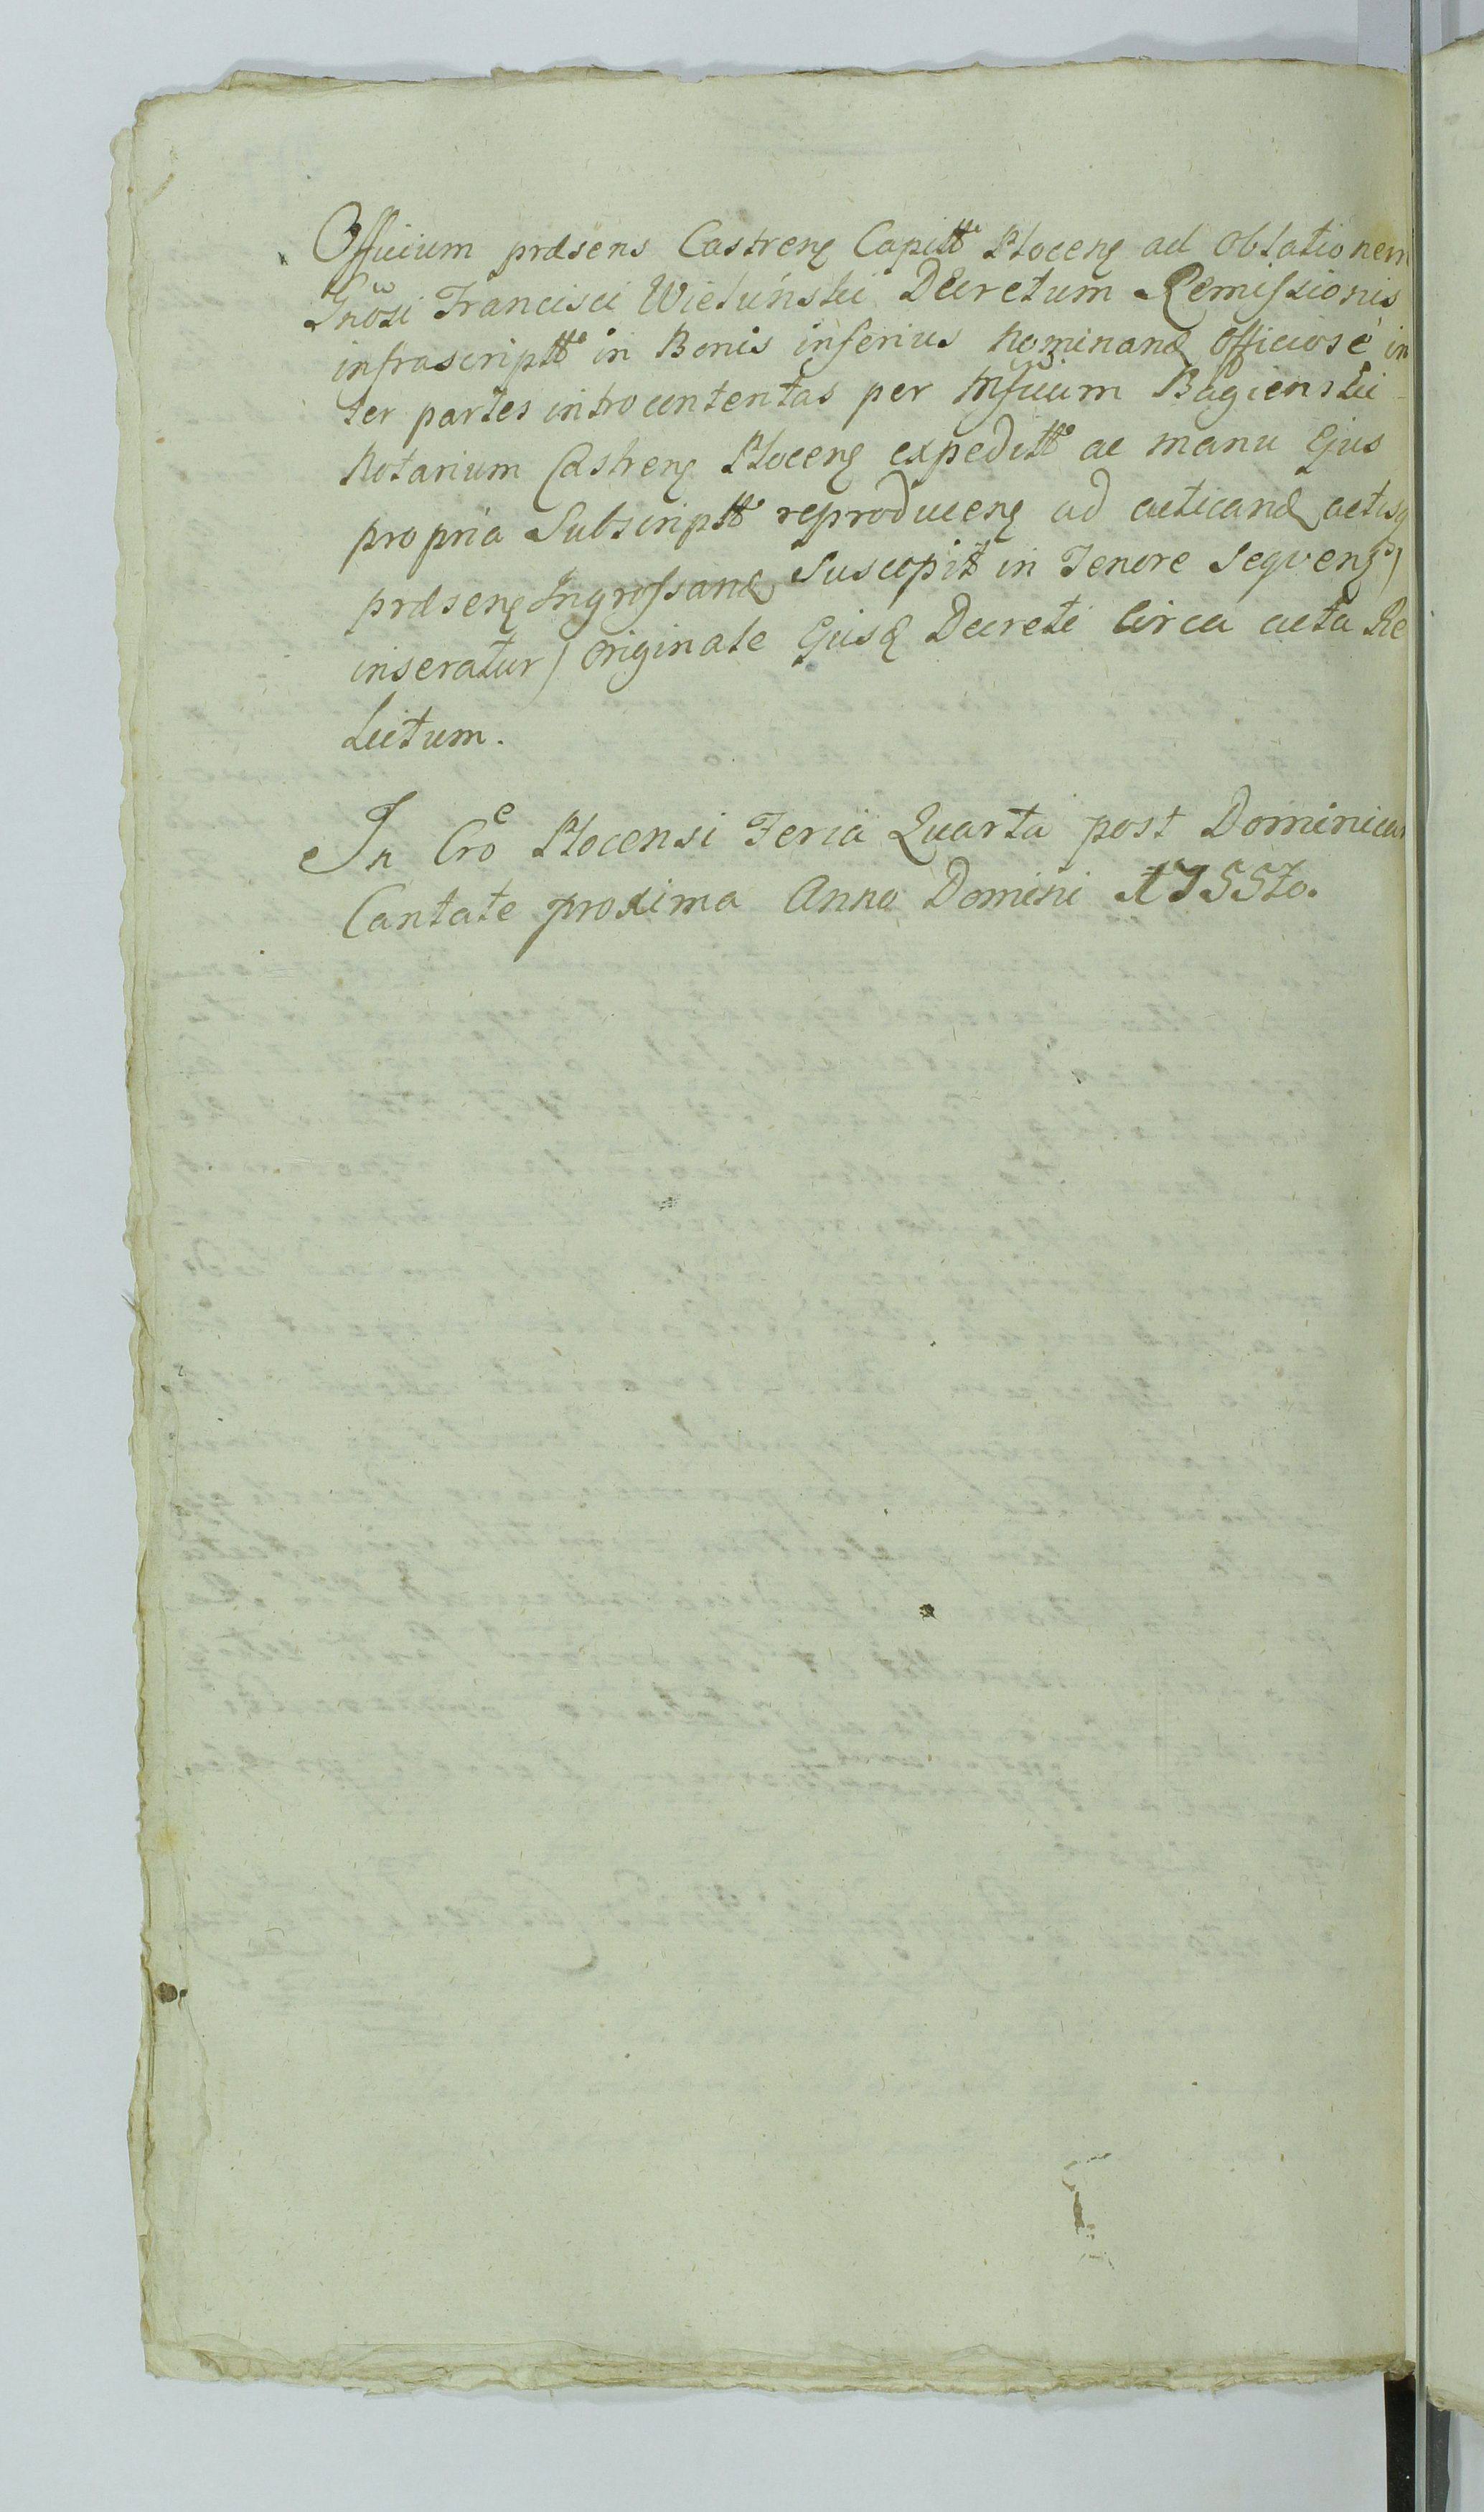 Officium præsens Castren Capittˡᵉ Plocen ad Oblationem
Gnosi Francisci Wieluński Decretum Remissionis
infrascriptt in Bonis inferius Nominand Officiose in
ter partes introcontentas per Mfcum Bagienski
Notarium Castren Plocen expeditt ac manu Ejus
propria Subscriptt reproducen ad acticand actisq
præsen Ingrossand Suscepit in Tenore Sequen /
inseratur / Originale Ejusd Decreti Circa acta Re
lictum.
In Cro Plocensi Feria Quarta post Dominicam
Cantate proxima Anno Domini 1755to.